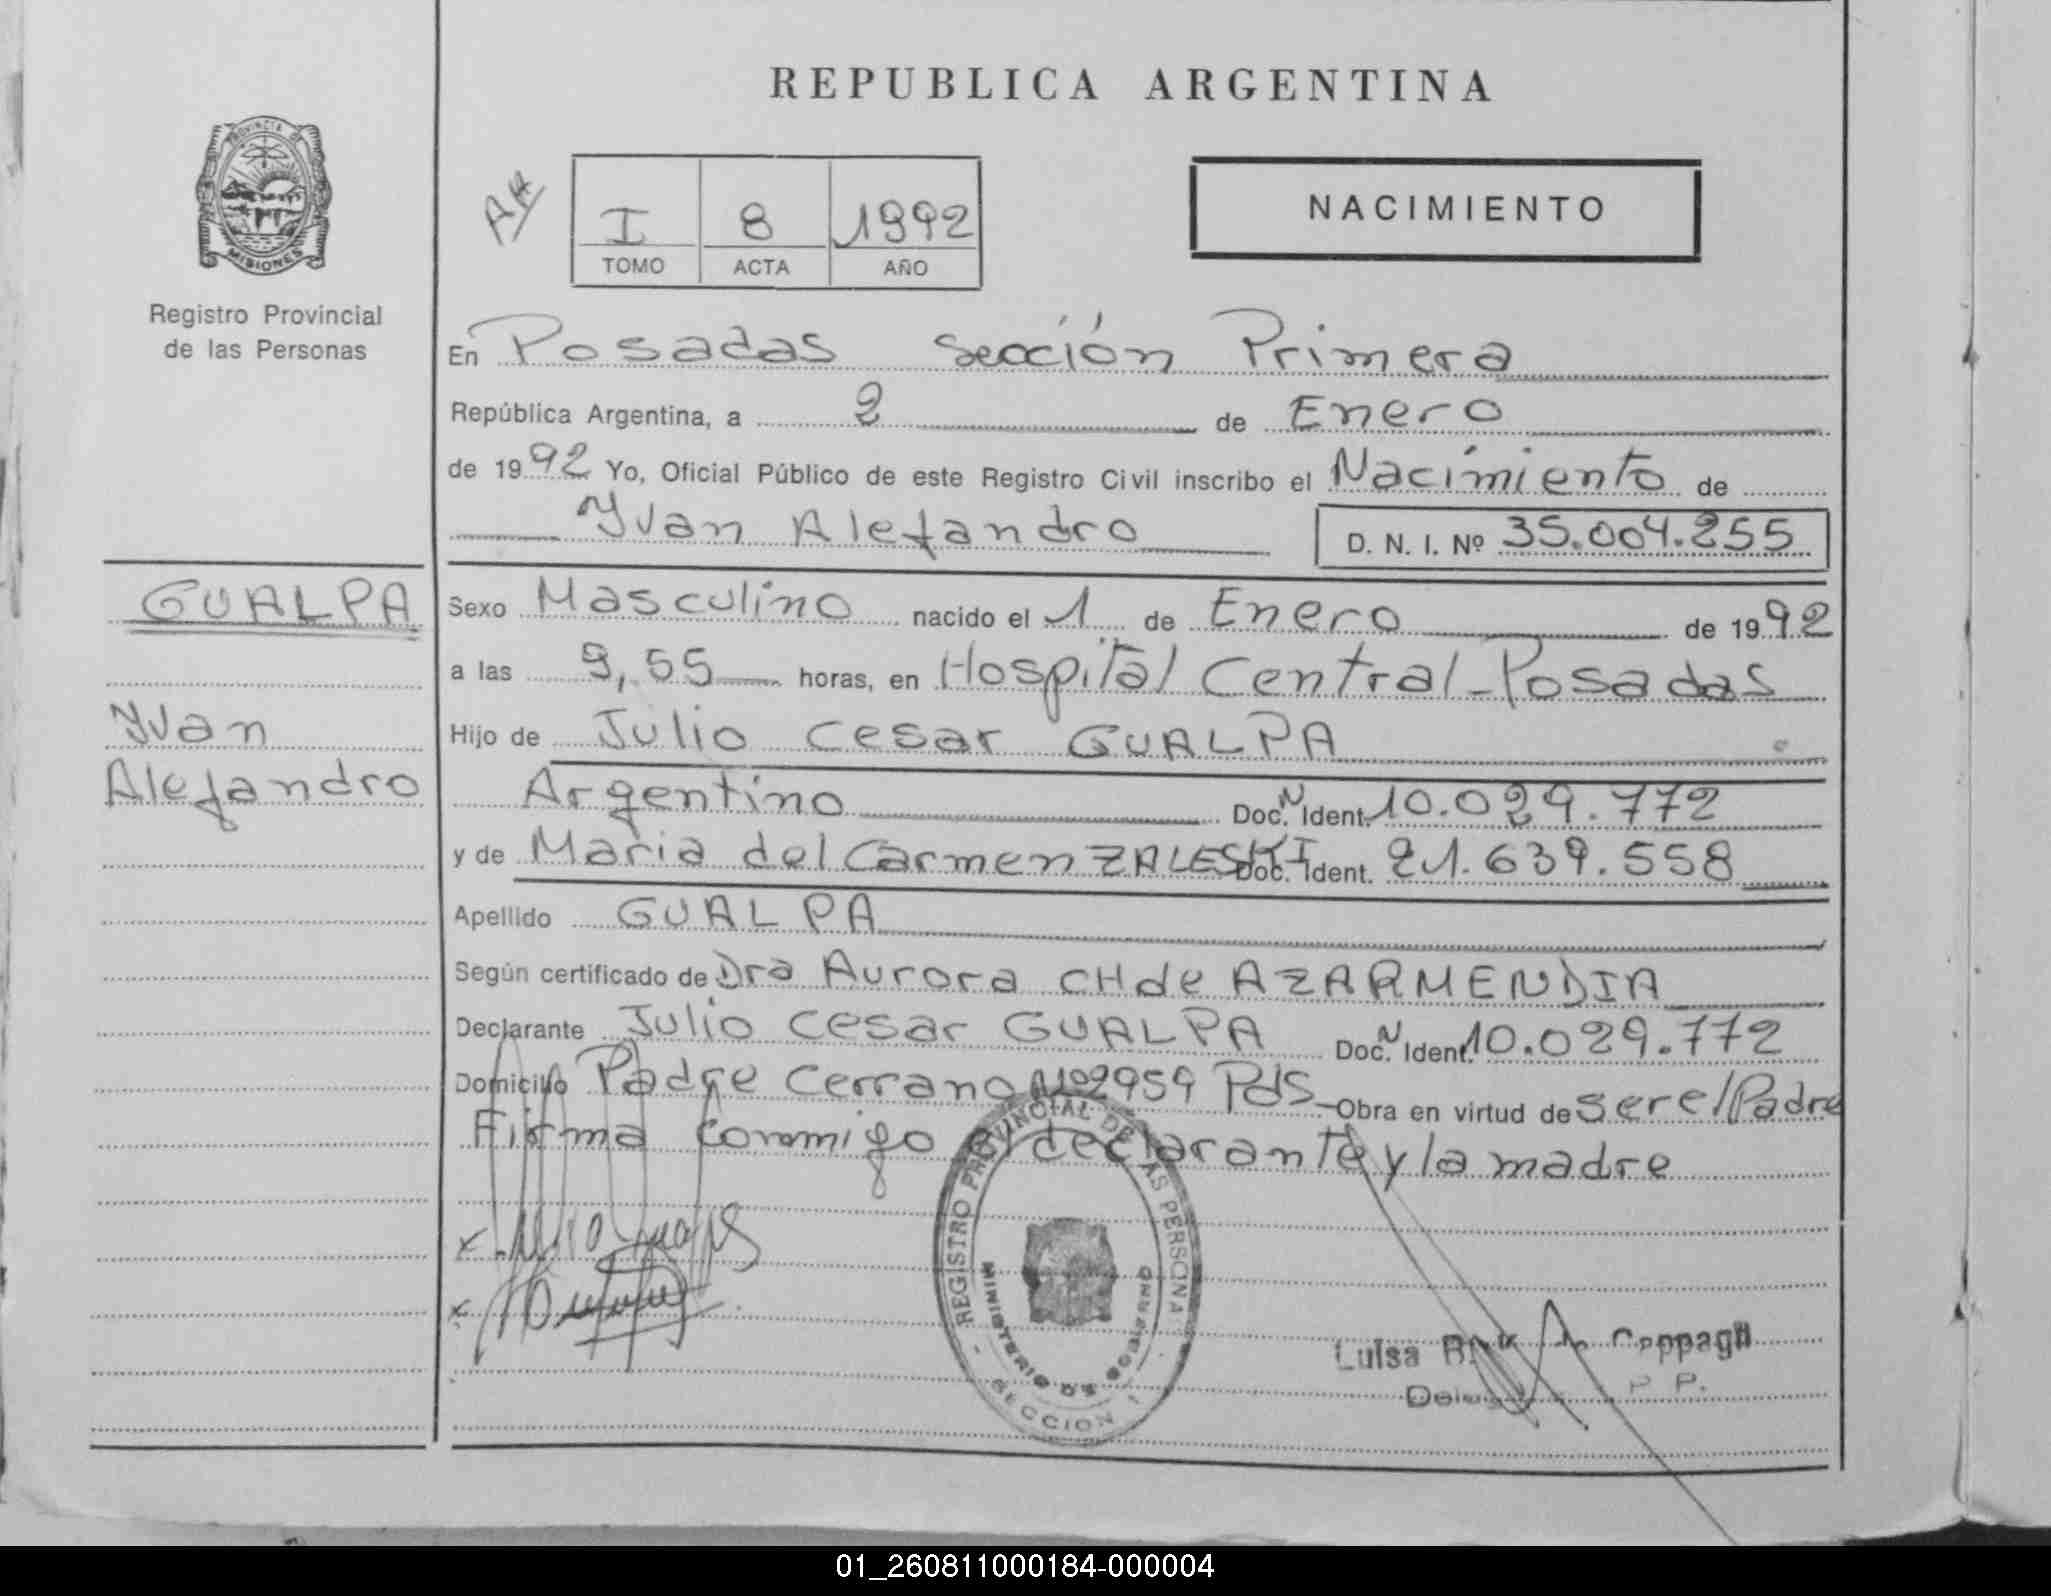 REPUBLICA ARGENTINA
PROVINCIA DE
MISIONES
Registro Provincial
de las Personas
I 8 1992
TOMO ACTA AÑO
NACIMIENTO
En Posadas Sección Primera
República Argentina, a 2 de Enero
de 1992 Yo, Oficial Público de este Registro Civil inscribo el Nacimiento de
Yvan Alejandro D. N. I. Nº 35.004.255
GUALPA
Yvan
Alejandro
Sexo Masculino nacido el 1 de Enero de 1992
a las 9,55 horas, en Hospital Central-Posadas
Hijo de Julio Cesar GUALPA
Argentino Doc. N Ident. 10.029.772
y de Maria del Carmen ZALESKI Doc. Ident. 21.639.558
Apellido GUALPA
Según certificado de Dra Aurora CH de AZARMENDIA
Declarante Julio Cesar GUALPA Doc. N Ident. 10.029.772
Domicilio Padre Cerrano Nº 2959 Pds - Obra en virtud de ser el Padre
Firma conmigo el declarante y la madre
REGISTRO PROVINCIAL DE LAS PERSONAS
MINISTERIO DE GOBIERNO
SECCION 1
Luisa
01_260811000184-000004